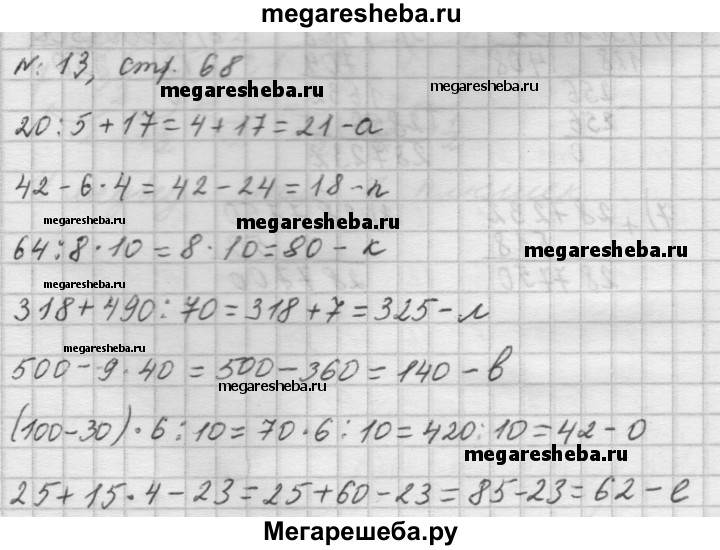 megaresheba.ru
№ 13, стр. 68
megaresheba.ru megaresheba.ru
20:5+17=4+17=21-а
42-6·4=42-24=18-п
megaresheba.ru megaresheba.ru
64:8·10=8·10=80-к
318+490:70=318+7=325-л
megaresheba.ru
500-9·40=500-360=140-в
megaresheba.ru
(100-30)·6:10=70·6:10=420:10=42-о
megaresheba.ru
25+15·4-23=25+60-23=85-23=62-е
Мегарешеба.ру